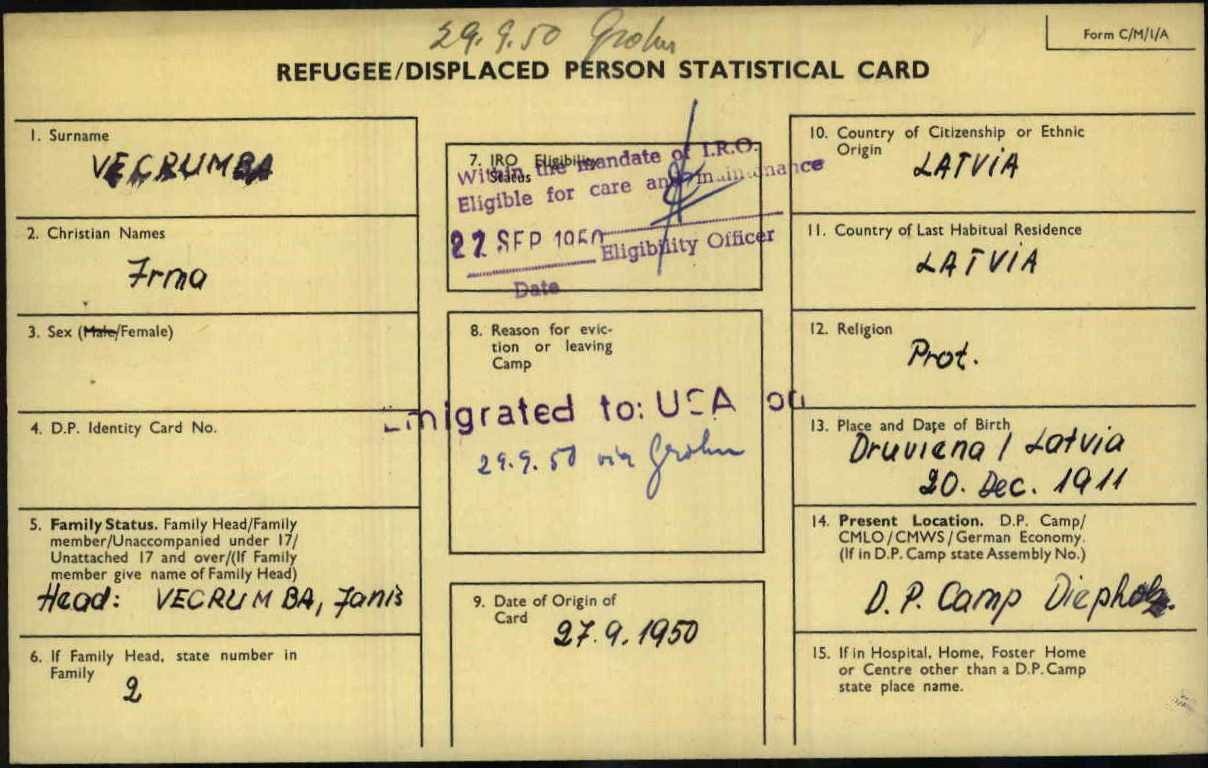 29.9.50 Grohn
Form C/M/1/A
REFUGEE/DISPLACED PERSON STATISTICAL CARD
1. Surname
VECRUMBA
2. Christian Names
Irma
3. Sex (Male/Female)
4. D.P. Identity Card No.
5. Family Status. Family Head/Family
member/Unaccompanied under 17/
Unattached 17 and over/(If Family
member give name of Family Head)
Head: VECRUMBA, Janis
6. If Family Head, state number in
Family
2
7. IRO Eligibility
Status
Within the mandate of I.R.O.
Eligible for care and maintenance
27 SEP 1950
Eligibility Officer
Date
8. Reason for evic-
tion or leaving
Camp
Emigrated to: USA on
29.9.50 via Grohn
9. Date of Origin of
Card
27.9.1950
10. Country of Citizenship or Ethnic
Origin
LATVIA
11. Country of Last Habitual Residence
LATVIA
12. Religion
Prot.
13. Place and Date of Birth
Druviena / Latvia
20. Dec. 1911
14. Present Location. D.P. Camp/
CMLO/CMWS/German Economy.
(If in D.P. Camp state Assembly No.)
D.P. Camp Diepholz.
15. If in Hospital, Home, Foster Home
or Centre other than a D.P. Camp
state place name.